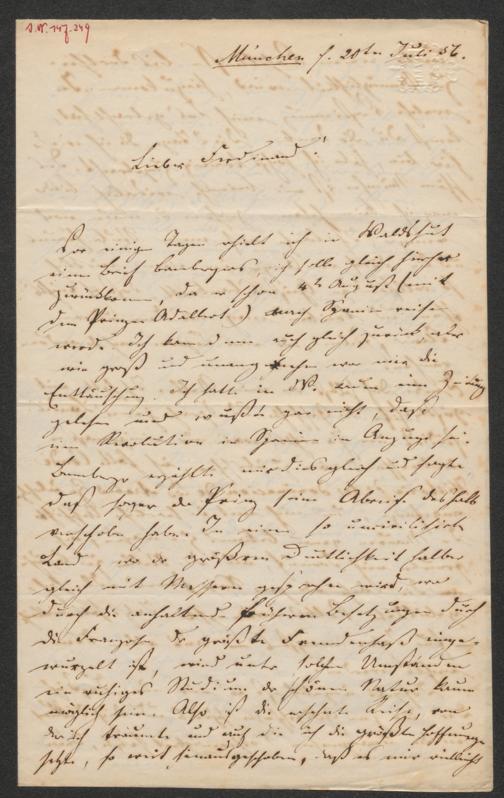 I.N. 147.249
München d. 20ten Juli 56.
Lieber Ferdinand!
Vor einigen Tagen erhielt ich in Waldshut
einen Brief Bambergers, ich solle gleich hierher
zurückkommen, da er schon 4ten August (mit
dem Prinzen Adalbert) nach Spanien reisen
werde. Ich kam dann auch gleich zurück, aber
wie groß und unangenehm war mir die
Enttäuschung. Ich hatte in W. kaum eine Zeitung
gelesen und wußte gar nicht, daß
eine Revolution in Spanien im Anzuge sei.
Bamberger erzählte mir dies gleich und sagte
daß sogar der Prinz seine Abreise deshalb
verschoben habe. In einem so uncivilisirten
Land, wo der größeren Deutlichkeit halber
gleich mit Messern gesprochen wird, wo
durch die anhaltenden früheren Besetzungen durch
die Franzosen der größte Fremdenhaß einge-
wurzelt ist, wird unter solchen Umständen
ein ruhiges Studium der schönen Natur kaum
möglich sein. Also ist die ersehnte Reise, von
der ich träumte und auf die ich die größten Hoffnungen
setzte, so weit hinausgeschoben, daß es mir vielleicht